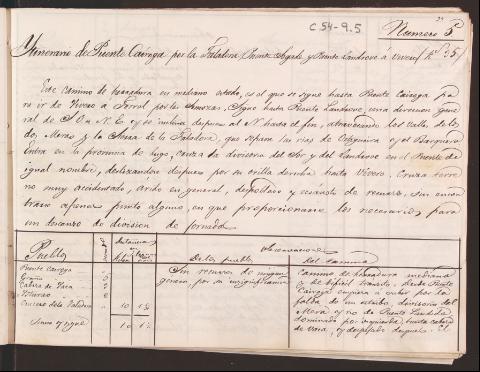 C.54-9.5
Numero 5º
Itinerario de Puente Cairoga por la Faladora Puente Segade y Puente Landrove á Vivero
Este camino de herradura en mediano estado, es el que se sigue hasta Puente Cairoga pa
ra ir de Vivero á Ferrol por las Sigue hasta Puente Landrove, una direccion gene
ral de S.O. á N.E. y se inclina despues al N. hasta el fin, atravesando los valles de
Mera y la Sierra de la Faladora, que separa las rias de Ortigueira y el Barquero
Entra en la provincia de Lugo, cruza la divisoria del Sor y del Landrove en el Puente de
igual nombre, deslizandose despues por su orilla derecha hasta Vivero. Cruza terre
no muy accidentado, árido en general, despoblado y escaso de recursos, sin encon
trarse apenas punto alguno, en que proporcionarse los necesarios para
un descanso de division de jornada.
Pueblos
Distancias
Observaciones
De los pueblos
Del camino
Puente Cairoga
Cabeza de Vaca
Crucero de la Faladora 10 1½
Suma y sigue 10 1½
Sin recursos de ningun
genero, por su insignificancia
Camino de herradura mediano
y de dificil transito, desde Puente
Cairoga empieza á subir por la
falda de un estribo, divisorio del
Mera y rio de Puente
dominado por izquierda, hasta Cabeza
de Vaca, y despejado despues. El